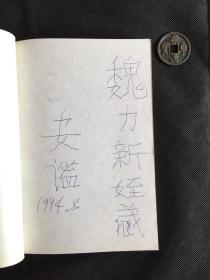 魏力新姪藏
安谧
1994.8